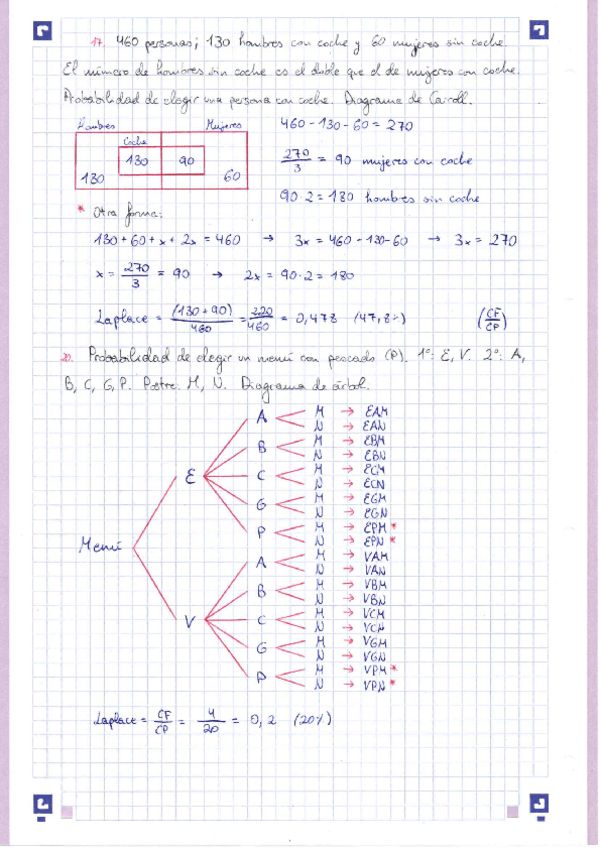 17. 460 personas; 130 hombres con coche y 60 mujeres sin coche.
El número de hombres sin coche es el doble que el de mujeres con coche.
Probabilidad de elegir una persona con coche. Diagrama de Caroll.
Hombres Mujeres
Coche
130 90
130 60
460 - 130 - 60 = 270
270/3 = 90 mujeres con coche
90·2 = 180 hombres sin coche
* Otra forma:
130 + 60 + x + 2x = 460 → 3x = 460 - 130 - 60 → 3x = 270
x = 270/3 = 90 → 2x = 90·2 = 180
Laplace = (130 + 90)/460 = 220/460 = 0,478 (47,8%) (CF/CP)
20. Probabilidad de elegir un menú con pescado (P). 1º: E, V. 2º: A,
B, C, G, P. Postre: M, N. Diagrama de árbol.
Menú
E
A M → EAM
N → EAN
B M → EBM
N → EBN
C M → ECM
N → ECN
G M → EGM
N → EGN
P M → EPM *
N → EPN *
V
A M → VAM
N → VAN
B M → VBM
N → VBN
C M → VCM
N → VCN
G M → VGM
N → VGN
P M → VPM *
N → VPN *
Laplace = CF/CP = 4/20 = 0,2 (20%)